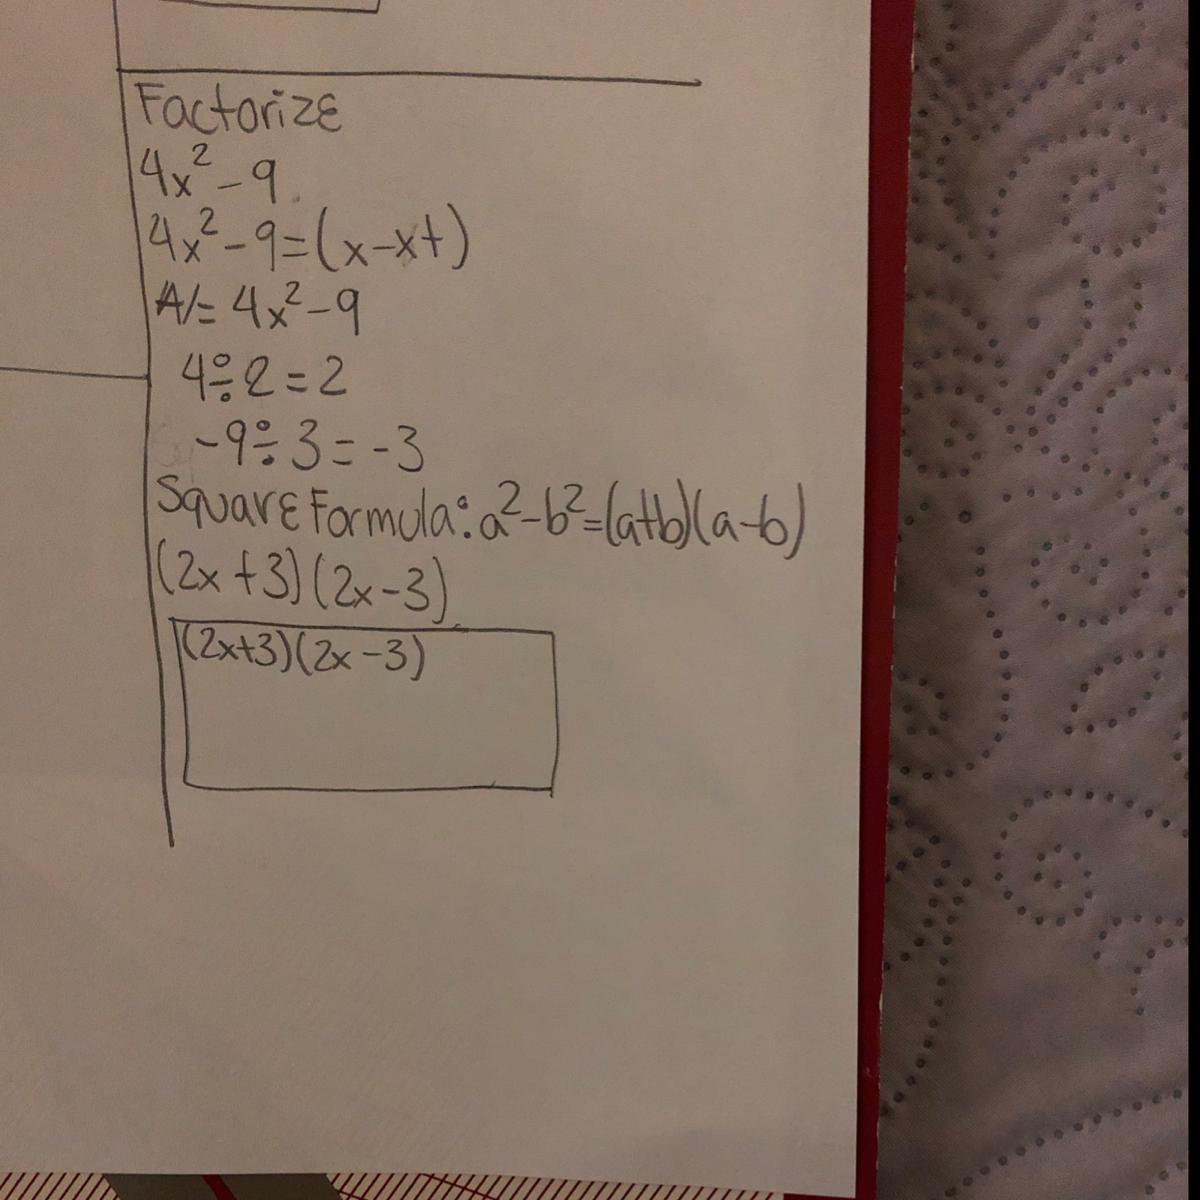 Factorize
4x² - 9
4x² - 9 = (x - xt)
A/= 4x² - 9
4 ÷ 2 = 2
-9 ÷ 3 = -3
Square Formula: a² - b² = (a+b)(a-b)
(2x + 3)(2x - 3)
(2x+3)(2x - 3)